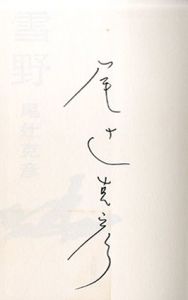 尾辻克彦
雪野
尾辻克彦